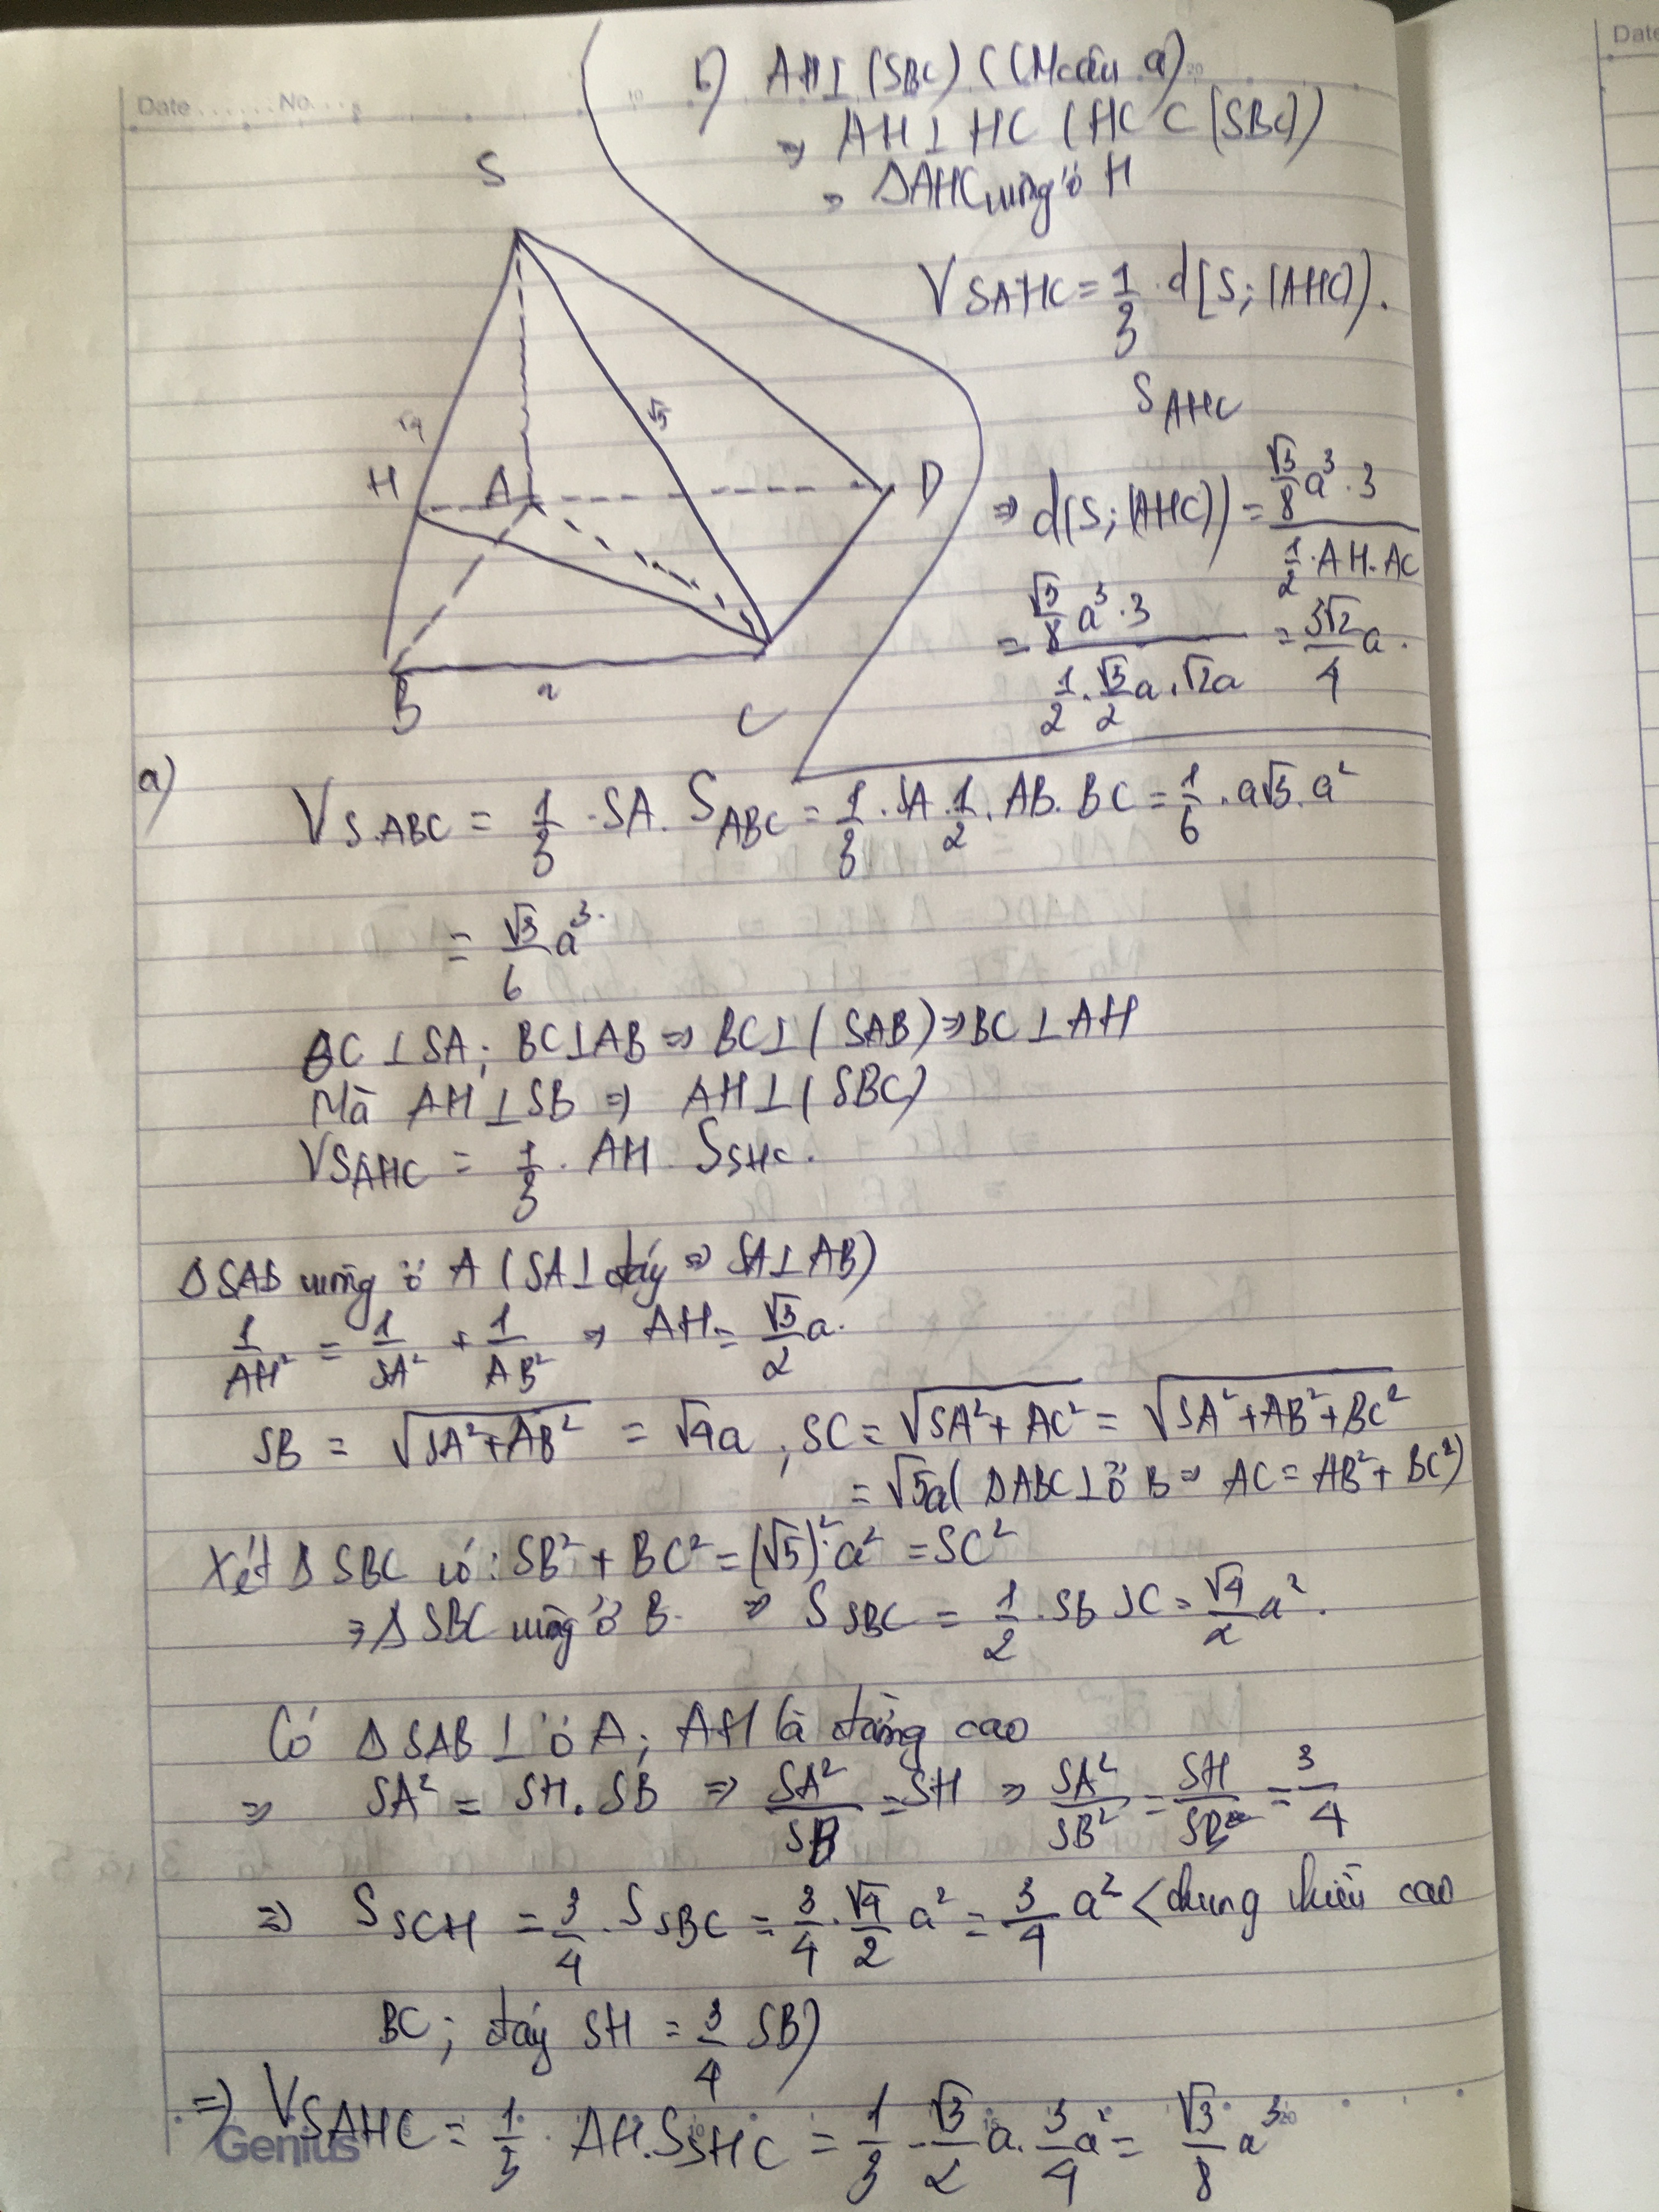 Date.......No....
Date
b) AH ⊥ (SBC) (CM câu a)
⇒ AH ⊥ HC (HC ⊂ (SBC))
⇒ ΔAHC vuông ở H
V SAHC = 1/3 . d(S; (AHC)).
S AHC
⇒ d(S; (AHC)) = (√3/8 a³ . 3)/(1/2 . AH . AC)
= (√3/8 a³ . 3)/(1/2 . √3/2 a . √2a) = 3√2/4 a.
S
√5
H
A
D
B
a
C
a)
V S.ABC = 1/3 . SA . S ABC = 1/3 . SA . 1/2 . AB . BC = 1/6 . a√3 . a²
= √3/6 a³.
BC ⊥ SA ; BC ⊥ AB ⇒ BC ⊥ (SAB) ⇒ BC ⊥ AH
Mà AH ⊥ SB ⇒ AH ⊥ (SBC)
V SAHC = 1/3 . AH . S SHC.
ΔSAB vuông ở A (SA ⊥ đáy ⇒ SA ⊥ AB)
1/AH² = 1/SA² + 1/AB² ⇒ AH = √3/2 a.
SB = √(SA² + AB²) = √4a ; SC = √(SA² + AC²) = √(SA² + AB² + BC²)
= √5a (ΔABC ⊥ ở B ⇒ AC = AB² + BC²)
Xét Δ SBC có : SB² + BC² = (√5)² . a² = SC²
⇒ Δ SBC vuông ở B. ⇒ S SBC = 1/2 . SB SC = √4/2 a².
Có Δ SAB ⊥ ở A ; AH là đường cao
⇒ SA² = SH . SB ⇒ SA²/SB = SH ⇒ SA²/SB² = SH/SB = 3/4
⇒ S SCH = 3/4 . S SBC = 3/4 . √4/2 a² = 3/4 a² (chung chiều cao
BC ; đáy SH = 3/4 SB)
⇒ V SAHC = 1/3 . AH . S SHC = 1/3 . √3/2 a . 3/4 a² = √3/8 a³
Genius